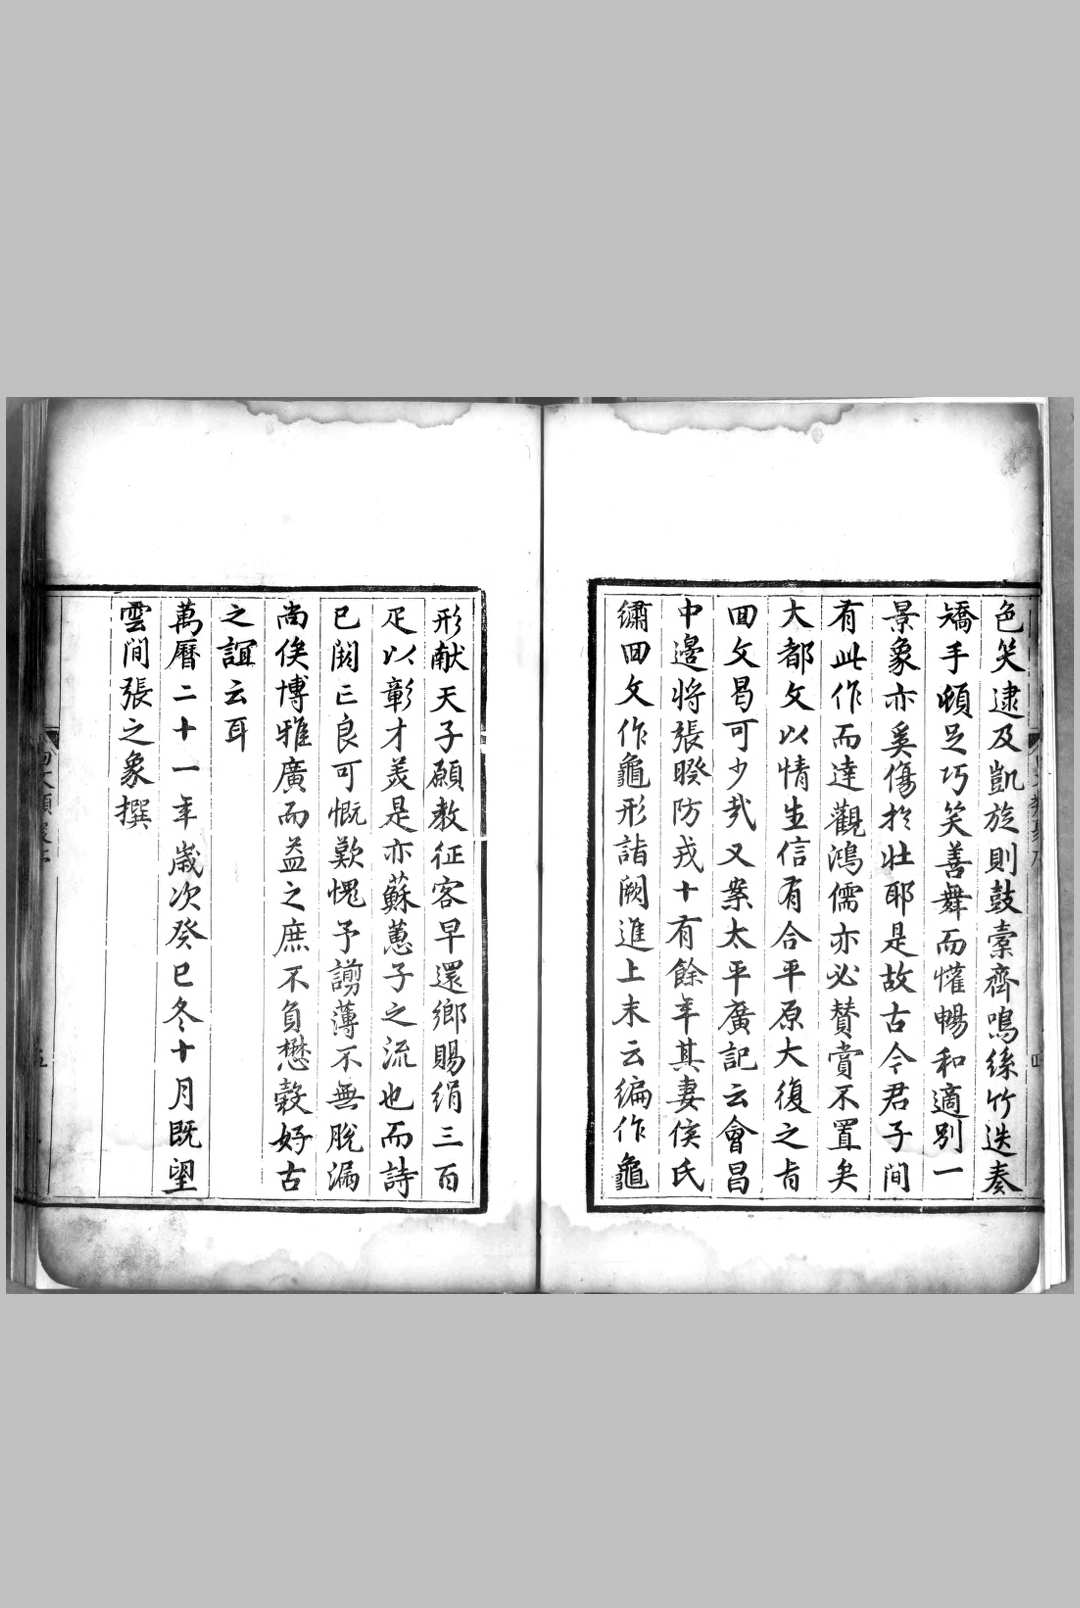 色笑逮及凱旋則鼓橐齊鳴絲竹迭奏
矯手頓足巧笑善舞而懽暢和適別一
景象亦奚傷於壯耶是故古今君子間
有此作而達觀鴻儒亦必贊賞不置矣
大都文以情生信有合平原大復之旨
回文曷可少哉又案太平廣記云會昌
中邊將張暌防戎十有餘年其妻侯氏
繡回文作龜形詣闕進上末云繡作龜
形献天子願教征客早還鄉賜絹三百
疋以彰才美是亦蘇蕙子之流也而詩
已闕亡良可慨歎愧予謭薄不無脫漏
尚俟博雅廣而益之庶不負懋敦好古
之誼云耳
萬曆二十一年歲次癸巳冬十月既望
雲間張之象撰